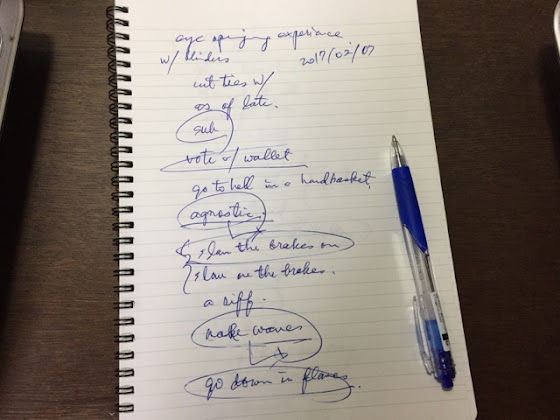 eye opening experience
w/ blinders 2017/02/07
cut ties w/
as of late.
sub
vote w/ wallet
go to hell in a handbasket.
agnostic.
slam the brakes on
slam on the brakes.
a riff.
make waves
go down in flames.